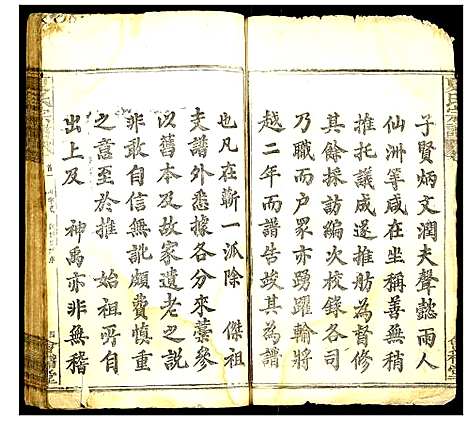 子賢炳文潤夫聲懿雨人
仙洲等咸在坐稱善無稍
推托議成遂推舫為督修
其餘採訪編次校錄各司
乃職而戶眾亦踴躍輸將
越二年而譜告竣其為譜
也凡在蘄一派除 傑祖
支譜外悉據各分來藁參
以舊本及故家遺老之説
非敢自信無訛頗費慎重
之意至於推 始祖所自
出上及 神禹亦非無稽